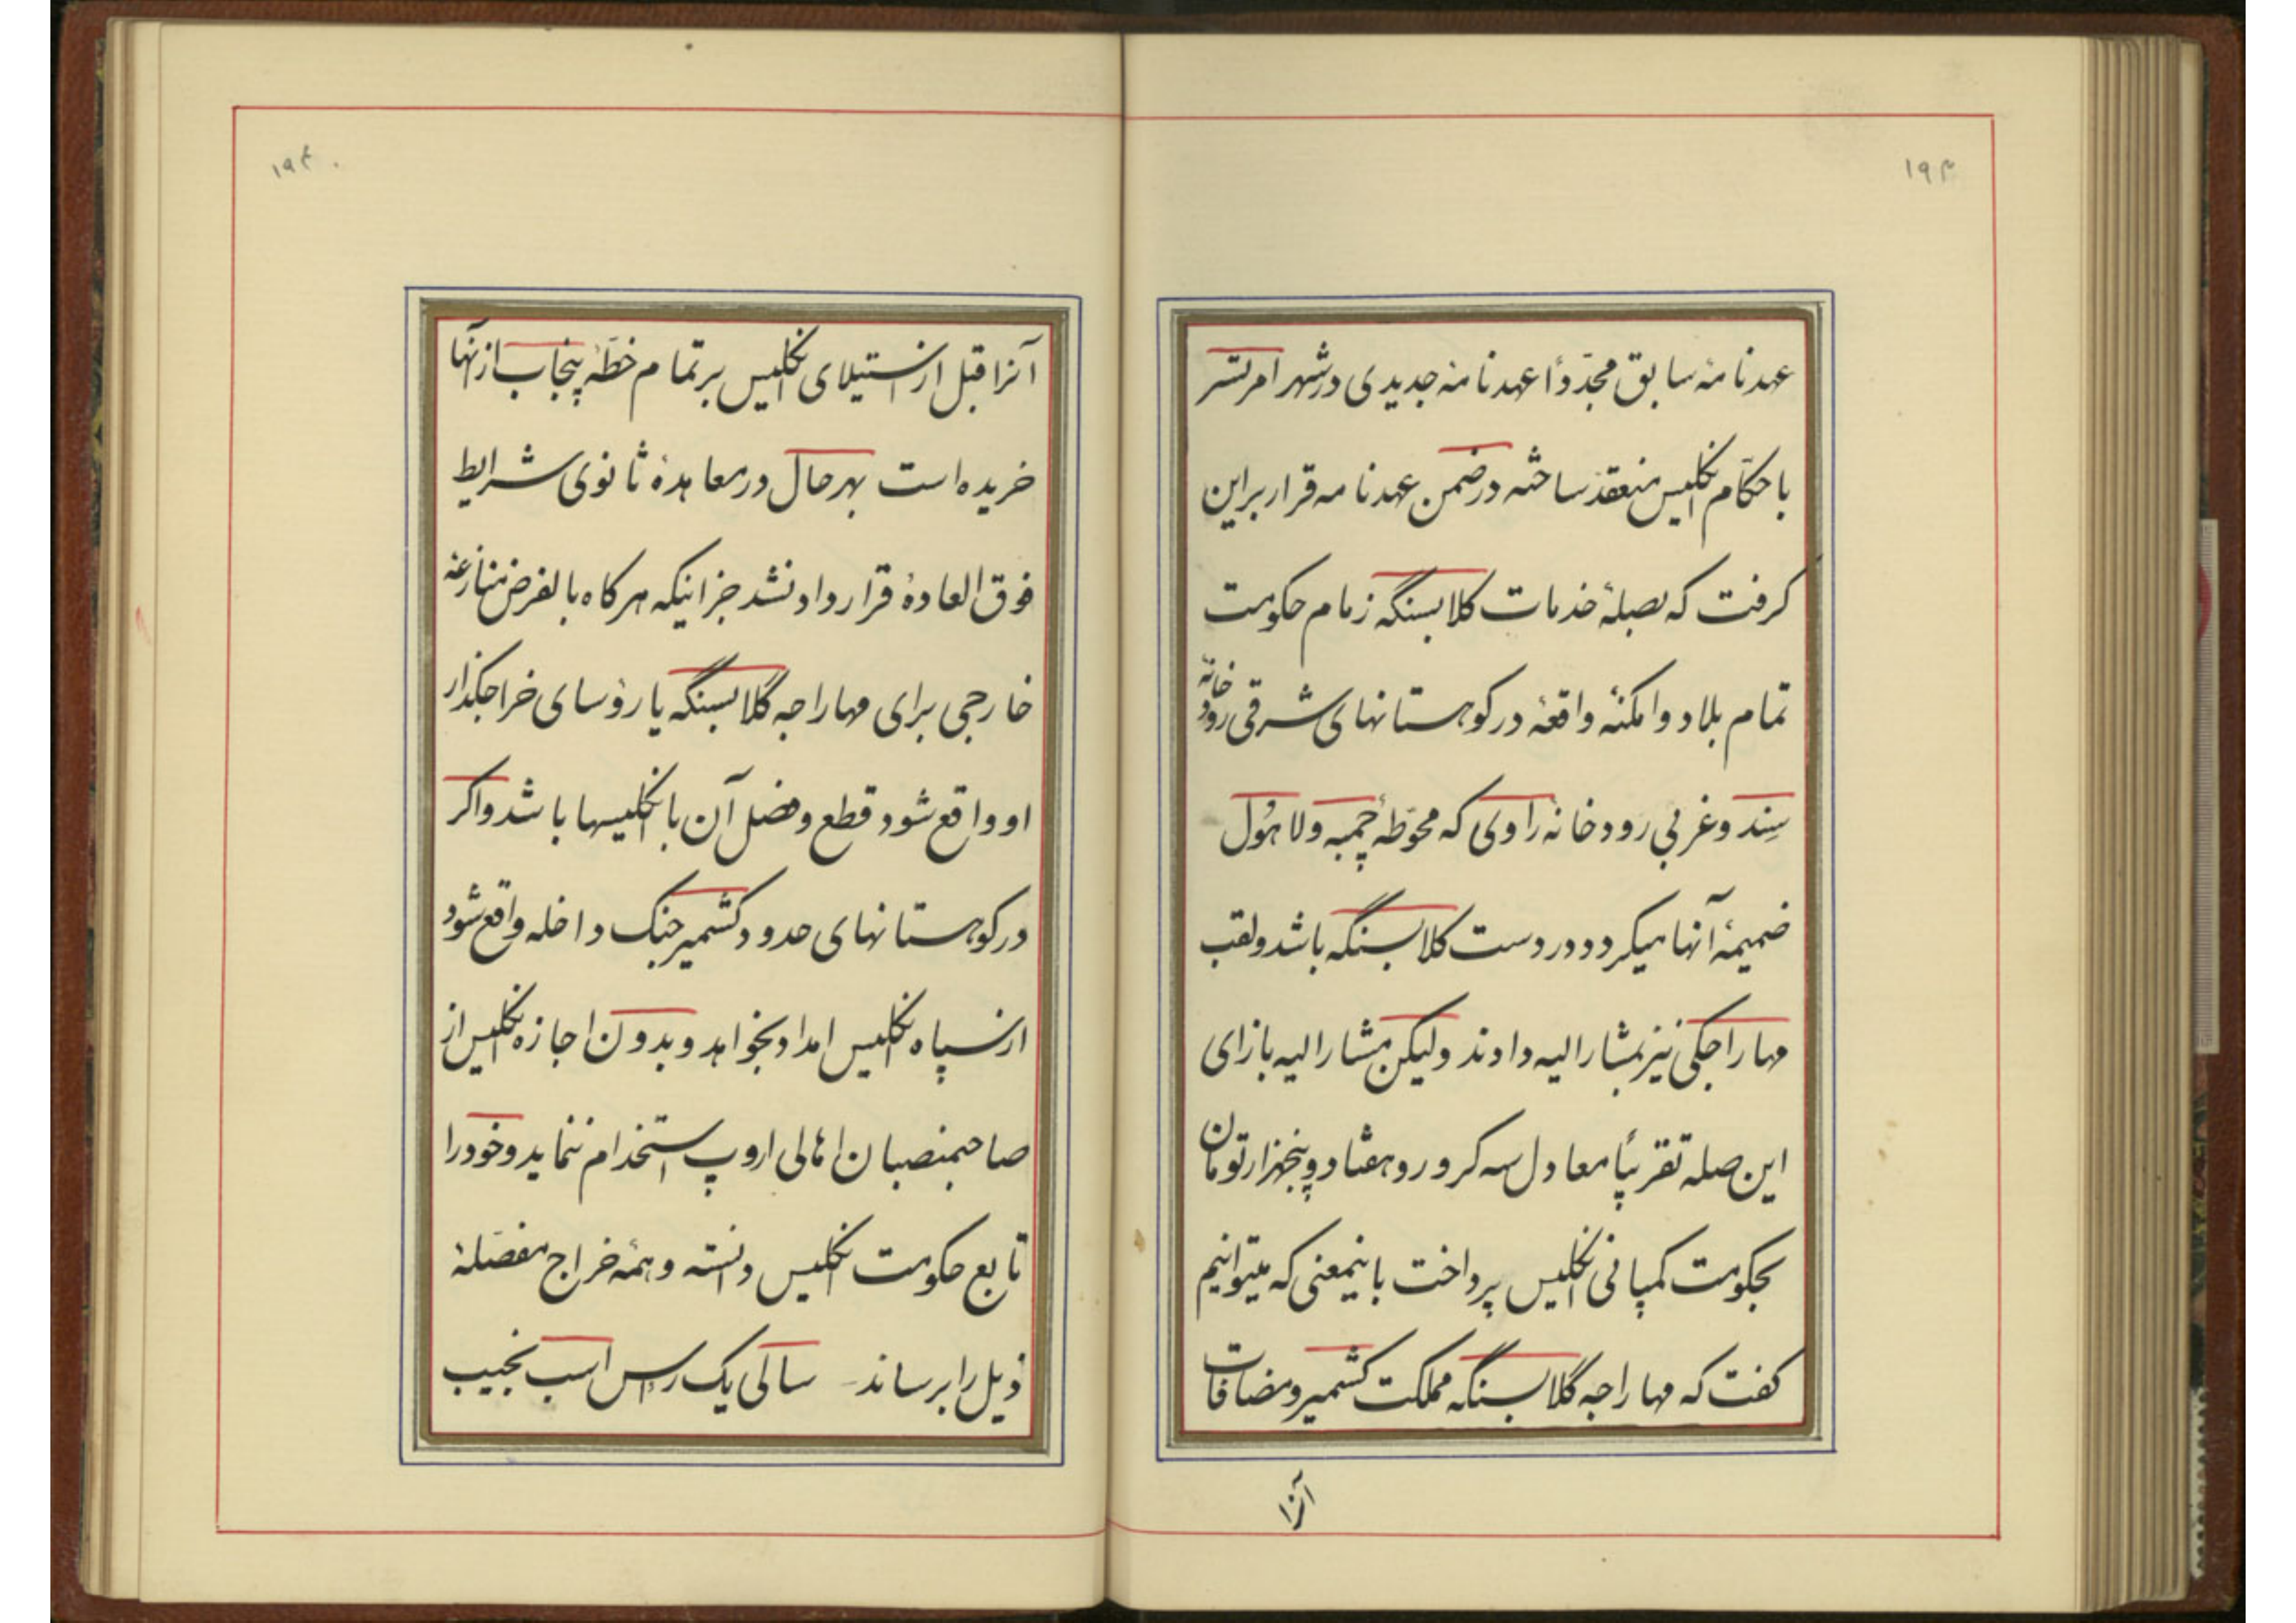 ۱۹۳
عهدنامهٔ سابق مجدّداً عهدنامه جدیدی در شهر امرتسر
با حکّام انگلیس منعقد ساخته در ضمن عهدنامه قرار براین
کرفت که بصلهٔ خدمات کلابسنگه زمام حکومت
تمام بلاد و امکنهٔ واقعهٔ در کوهستانهای شرقی رود خانهٔ
سِند و غربی رودخانه راوی که محوّطهٔ چمبه ولاهُول
ضمیمهٔ آنها میکردد در دست کلابسنگه باشد ولقب
مهاراجکی نیز بمشارالیه دادند ولیکن مشارالیه بازای
این صله تقریباً معادل سه کرور و هفتاد و پنجهزار تومان
بحکومت کمپانی انگلیس پرداخت باینمعنی که میتوانیم
کفت که مهاراجه گلابسنگه مملکت کشمیر و مضافات
آنرا
۱۹۴
آنرا قبل از استیلای انگلیس بر تمام خطّهٔ پنجاب از آنها
خریده است بهرحال در معاهدهٔ ثانوی شرایط
فوق العادهٔ قرارداد نشد جز اینکه هرکاه بالفرض منازعهٔ
خارجی برای مهاراجه گلابسنگه یا رؤسای خراجکذار
او واقع شود قطع و فصل آن با انگلیسها باشد و اکر
در کوهستانهای حدود کشمیر جنک داخله واقع شود
از سپاه انگلیس امداد بخواهد و بدون اجازه انگلیس از
صاحبمنصبان اهالی اروپ استخدام ننماید و خود را
تابع حکومت انگلیس دانسته و همهٔ خراج مفصّلهٔ
ذیل را برساند - سالی یک رأس اسب نجیب